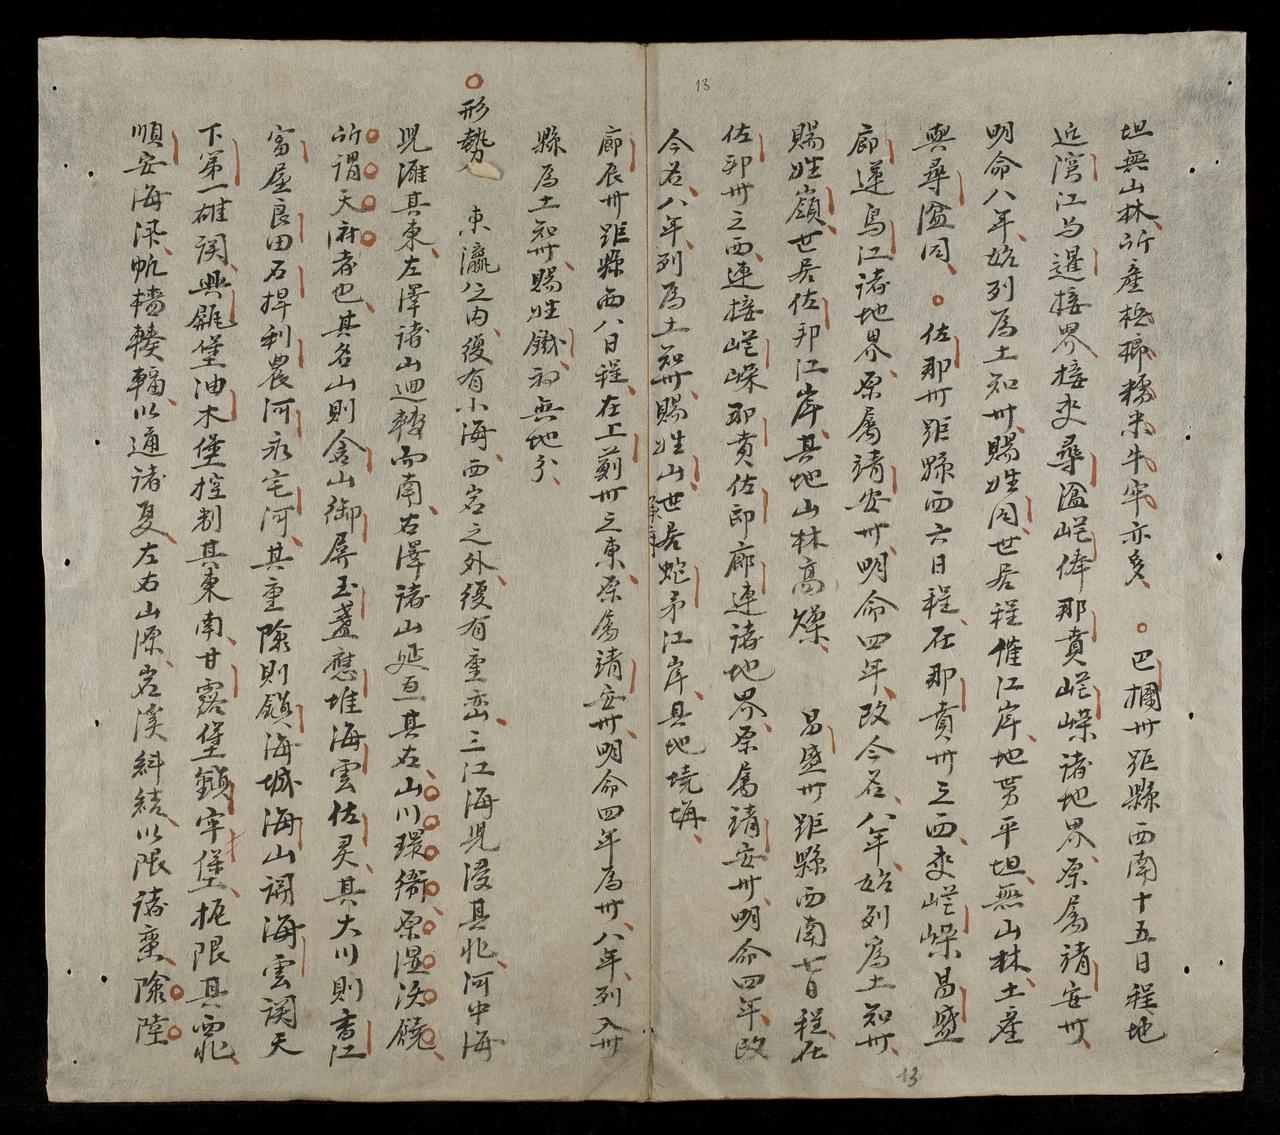 13
坦無山林所產梹榔糯米牛牢亦多 ○巴欄州距縣西南十五日程地
近瀉江与暹接界接夾尋溫岜俸那賁岜嶸諸地界原属靖安州
明命八年始列為土知州賜姓同世居程僅江岸地勢平坦無山林土產
與尋溫同 ○佐那州距縣西六日程在那賁州之西夾岜嶸昌盛
廊蓮鳥江諸地界原属靖安州明命四年改今名八年始列為土知州
賜姓嶺世居佐邦江岸其地山林高燥 昌盛州距縣西南七日程在
佐邦州之西連接岜嶸那賁佐郎廊連諸地界原属靖安州明命四年改
今名八年列為土知州賜姓山世居蛇矛江岸其地墝埆
廊辰州距縣西八日程在上薊州之東原属靖安州明命四年為州八年列入州
縣為土知州賜姓鐵初無地分
○形勢 東瀛之內復有小海西岩之外復有重巒三江海児浸其北河中海
児濰其東左澤諸山迴轉而南右澤諸山延亘其右山川環衞原濕沃饒
所謂天府者也其名山則衾山御屏玉盞應堆海雲佐灵其大川則香江
富屋良田石捍利農河永宅河其重險則鎮海城海山關海雲関天
下第一雄関興毓堡油木堡控制其東南甘露堡鎮牢堡扼限其西北
順安海汛帆檣轇輵以通諸夏左右山源岩溪斜結以限諸蠻險陸
13